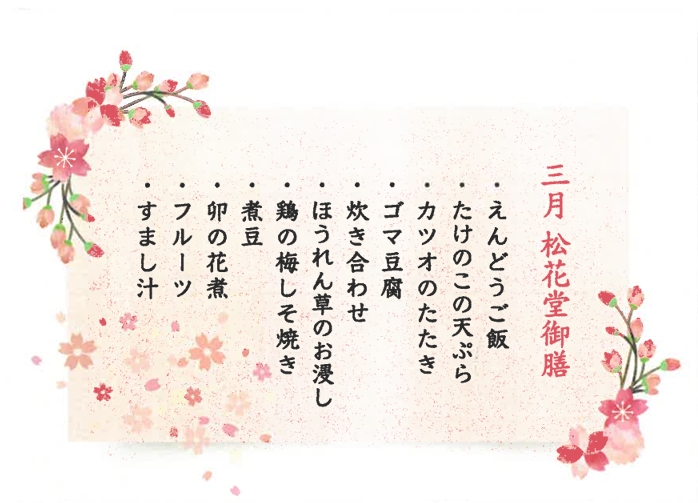 三月 松花堂御膳
・えんどうご飯
・たけのこの天ぷら
・カツオのたたき
・ゴマ豆腐
・炊き合わせ
・ほうれん草のお浸し
・鶏の梅しそ焼き
・煮豆
・卯の花煮
・フルーツ
・すまし汁